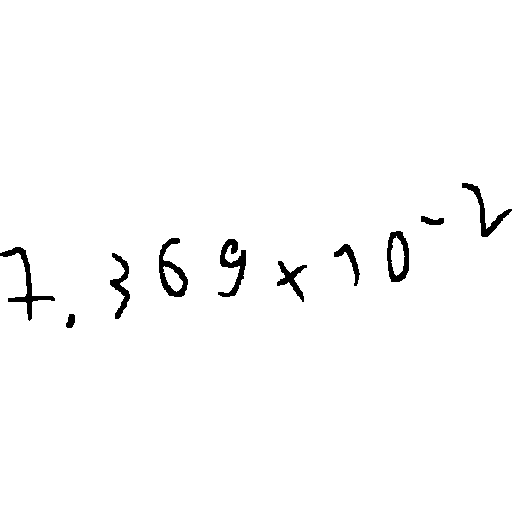 7.369×10⁻²